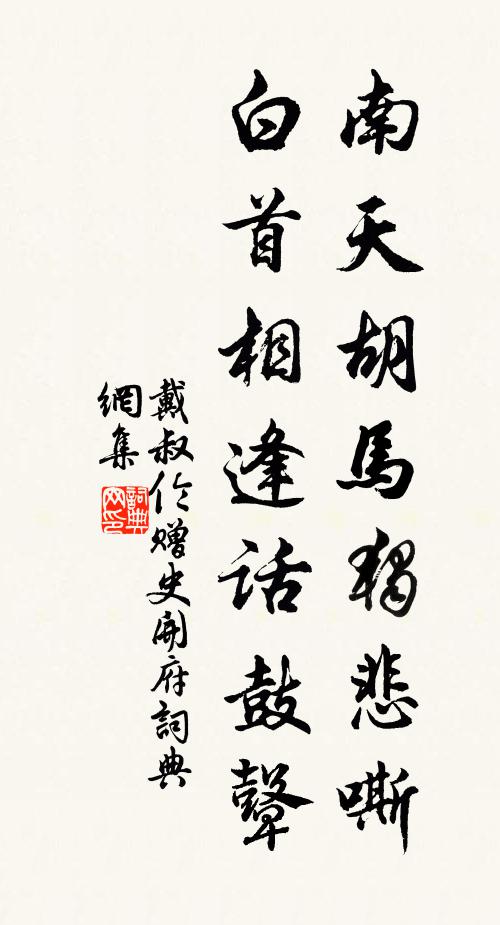 南天胡馬獨悲嘶
白首相逢話鼓鼙
戴叔伦贈史開府詞典
網集
詞典
网印